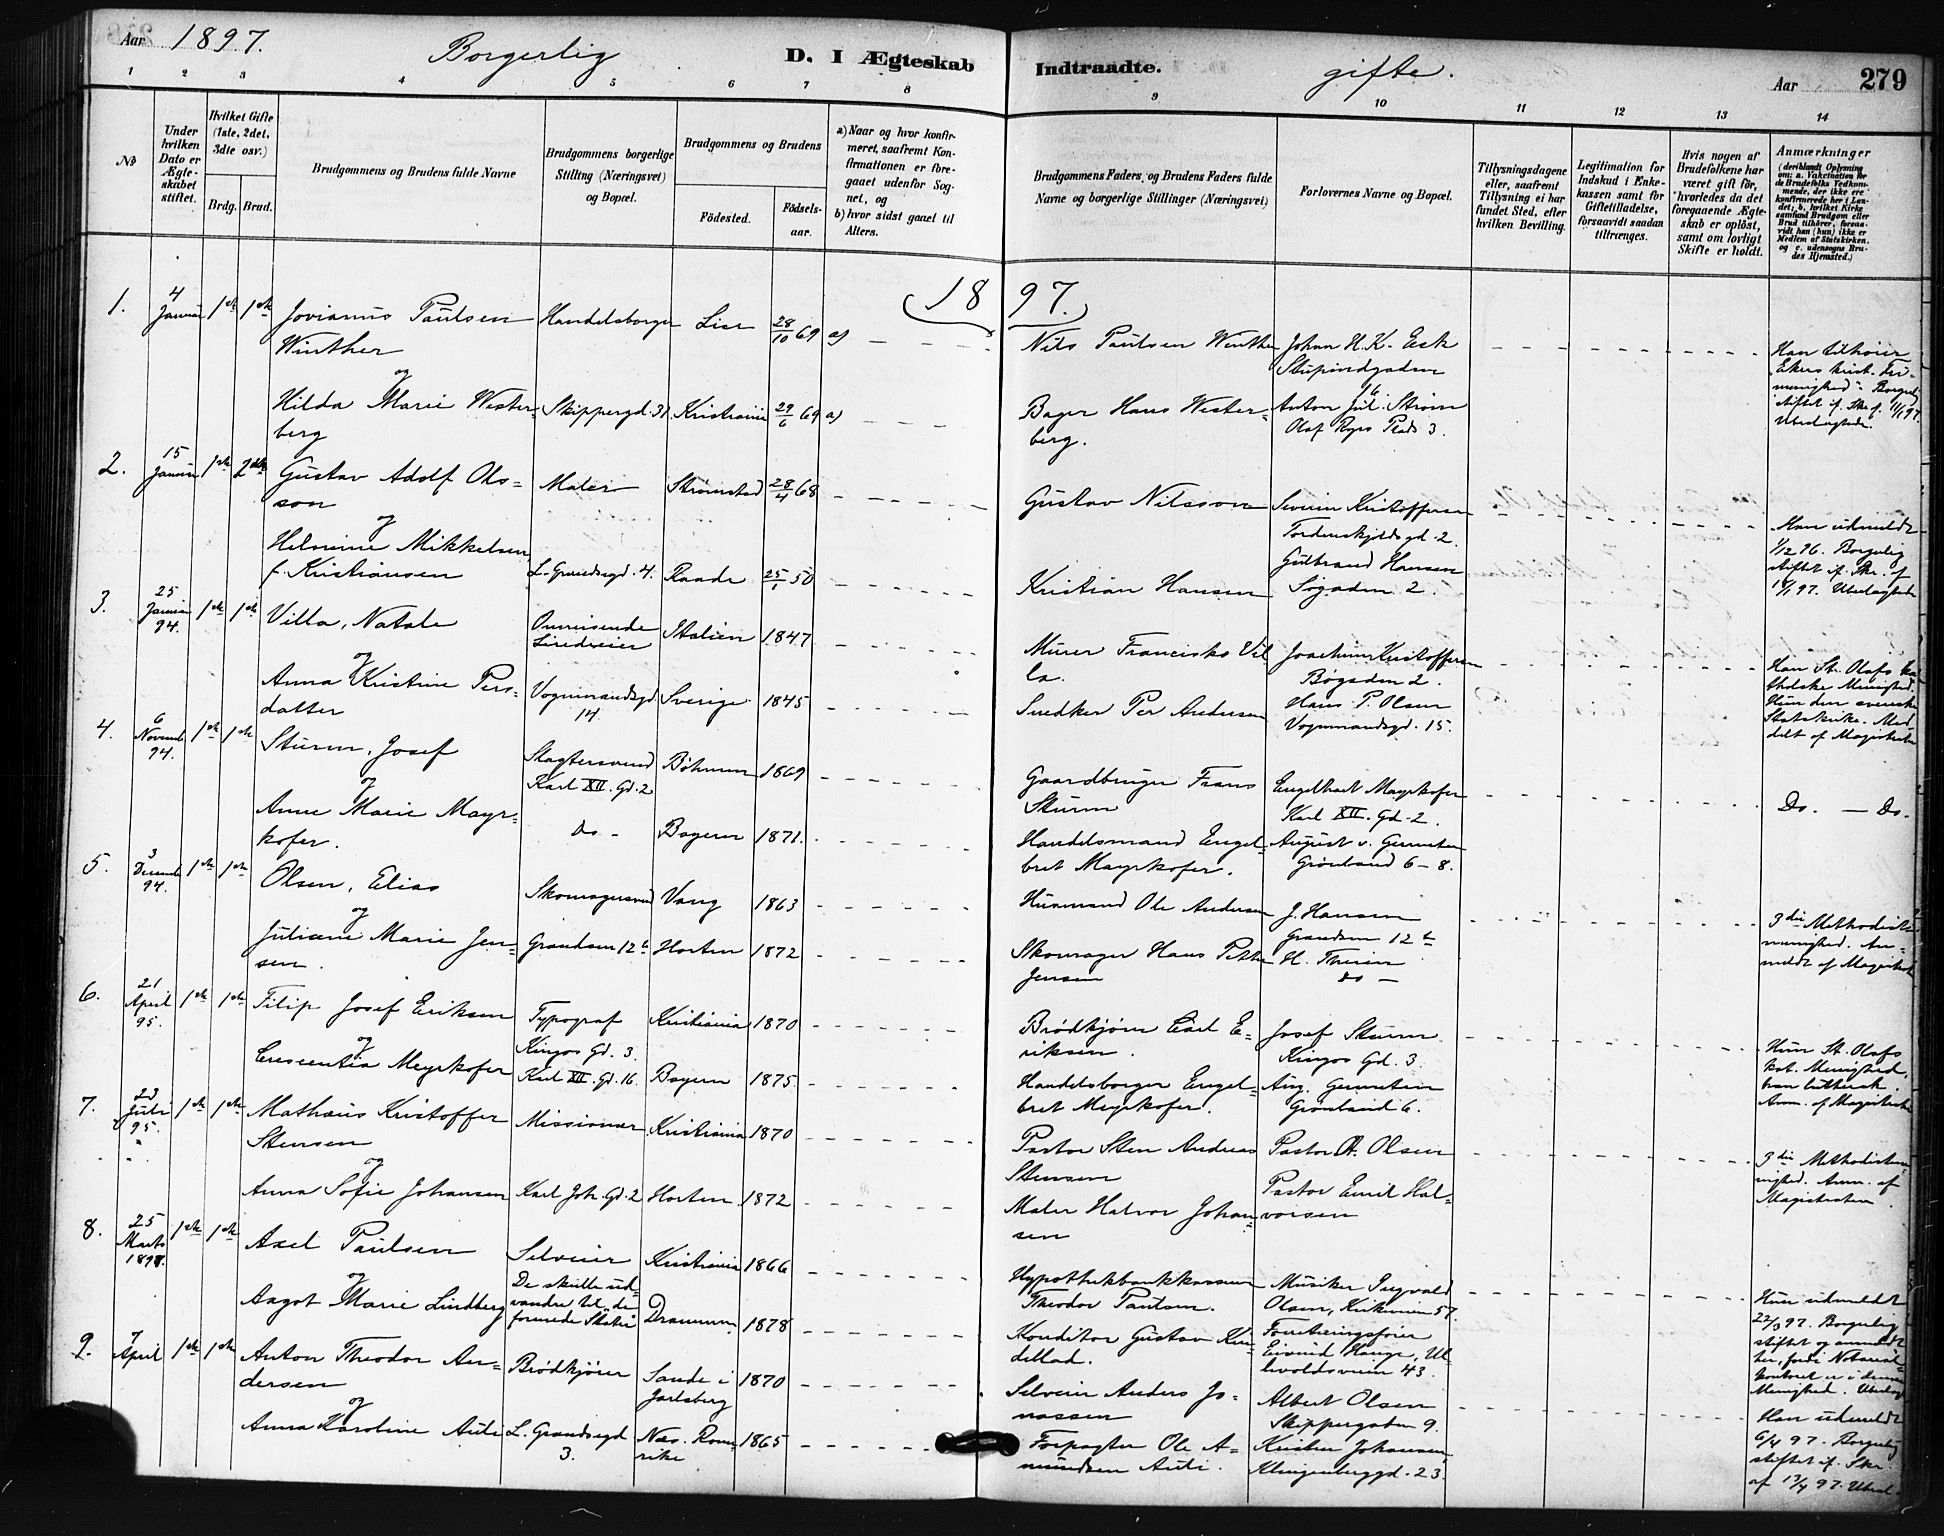 Aar 1897. Borgerlig D. I Ægteskab Indtraadte. gifte. Aar 279
1 2 3 4 5 6 7 8 9 10 11 12 13 14
No
Under hvilken Dato er Ægteskabet stiftet.
Hvilket Gifte (1ste, 2det, 3die osv.)
Brdg. Brud.
Brudgommens og Brudens fulde Navne
Brudgommens borgerlige Stilling (Næringsvei) og Bopæl.
Brudgommens og Brudens
Fødested. Fødselsaar.
a) Naar og hvor konfirmeret, saafremt Konfirmationen er foregaaet udenfor Sognet, og
b) hvor sidst gaaet til Alters.
Brudgommens Faders, og Brudens Faders fulde Navne og borgerlige Stillinger (Næringsvei)
Forlovernes Navne og Bopæl.
Tillysningsdagene eller, saafremt Tillysning ei har fundet Sted, efter hvilken Bevilling.
Legitimation for Indskud i Enkekassen samt for Giftetilladelse, forsaavidt saadan tiltrænges.
Hvis nogen af Brudefolkene har været gift før, hvorledes da det foregaaende Ægteskab er opløst, samt om lovligt Skifte er holdt.
Anmærkninger
(deriblandt Oplysning om: a. Vakcination for de Brudefolks Vedkommende, der ikke ere konfirmerede her i Landet; b. hvilket Kirkesamfund Brudgom eller Brud tilhører, forsaavidt han (hun) ikke er Medlem af Statskirken, og c. udensogns Brudes Hjemsted.)
1897.
1. 4 Januar 1ste 1ste Jovianus Paulsen Handelsborger Lier 28/10 69 a)
Winther
og
Hilda Marie Westerberg Skippergd. 31 Kristiania 29/6 69 a)
Nils Paulsen Winther Johan H. K. Eek
16
Bager Hans Westerberg. Anton Jul. Strøm
Olaf Ryes Plads 3.
Han tilhører
menighed". Borgerlig
stiftet if. Skr. f. 11/1 97.
2. 15 Januar 1ste 2den Gustav Adolf Olsson Maler Strømstad 28/4 68
og
Helmine Mikkelsen
f. Kristiansen L. Grændsegd. 4. Raade 25/1 50
Gustav Nilsson Severin Kristoffersen
Tordenskjoldsgd. 2.
Gulbrand Hansen
Kristian Hansen Søgaden 2.
Han udmeldt
1/12 96. Borgerlig
stiftet if. Skr. af
3. 25 Januar 94. 1ste 1ste Villa, Natale Omreisende
Liredreier Italien 1847
og
Anna Kristine Persdatter Vognmandsgd 14. Sverige 1845
Murer Francisko Villa. Joachim Kristoffersen
Bøgaden 2.
Snedker Per Andersen Hans P. Olsen
Vognmandsgd. 15.
Han St. Olafs katholske Menighed.
Hun den svenske
Statskirke. Meddelt af Magistraten
4. 6 Novemb 94. 1ste 1ste Sturm, Josef Slagtersvend
Karl XII. Gd. 2 Bøhmen 1869
og
Anne Marie Mayrkofer. do - Bayern 1871.
Gaardbruger Frans
Sturm Engelhart Mayrkofer
Karl XII. Gd. 2.
Handelsmand Engelbret Mayrkofer. August v. Gerusten
Grønland 6 - 8.
Do. — Do.
5. 3 Decemb 94. 1ste 1ste Olsen, Elias Skomagersvend Vang 1863
og
Juliane Marie Jensen. Grændsen 12 b Horten 1872
Husmand Ole Andersen J. Hansen
Grændsen 12 b
Skomager Hans Petter
Jensen do —
3die Methodistmenighed. Anmeldt af Magistrat
6. 21 April 95. 1ste 1ste Filip Josef Eriksen Typograf Kristiania 1870
og Kingos Gd. 3.
Crescentia Meyrkofer Karl XII. Gd. 16. Bayern 1875.
Brødkjører Carl Eriksen. Josef Sturm.
Kingos Gd. 3.
Handelsborger Engelbret Meyrkofer. Aug. Gerusten
Grønland 6.
Hun St. Olafs
kat. Menighed,
han luthersk.
Anm. af Magistraten
7. 23 Juli 95. 1ste 1ste Mathæus Kristoffer
Stensen Missionær Kristiania 1870
og
Anna Sofie Johansen Karl Joh. Gd. 2 Horten 1872
Pastor Sten Andreas
Stensen Pastor A. Olsen
Maler Halvor Johansen Pastor Emil Halvorsen
3die Methodistmenighed. Anm. af
Magistraten.
8. 25 Marts 1897. 1ste 1ste Axel Paulsen Selveier Kristiania 1866
og
Aagot Marie Lindberg De skulle udvandre til de
forenede Stater Drammen 1878
Hypothekbankkasserer
Theodor Paulsen. Musiker Ingvald
Olsen, Kirkeveien 57.
Konditor Gustav Forretningsfører
Eivind Hauge, Ullevoldsveien 43.
Hun udmeldt
22/3 97. Borgerlig
stiftet og anmeldt
her, fordi Notarialkontoret er i denne
Menighed.
9. 7 April 1ste 1ste Anton Theodor Andersen Brødkjører Sande i
Jarlsberg 1870
og
Anna Karoline Auli L. Grændsegd
3. Næs. Romerike 1865
Selveier Anders Jonassen Albert Olsen
Skippergaden 9.
Forpagter Ole Amundsen Auli. Kristen Johansen
Klingenberggd. 23.
Han udmeldt
6/4 97. Borgerlig
stiftet if. Skr.
af 13/4 97.